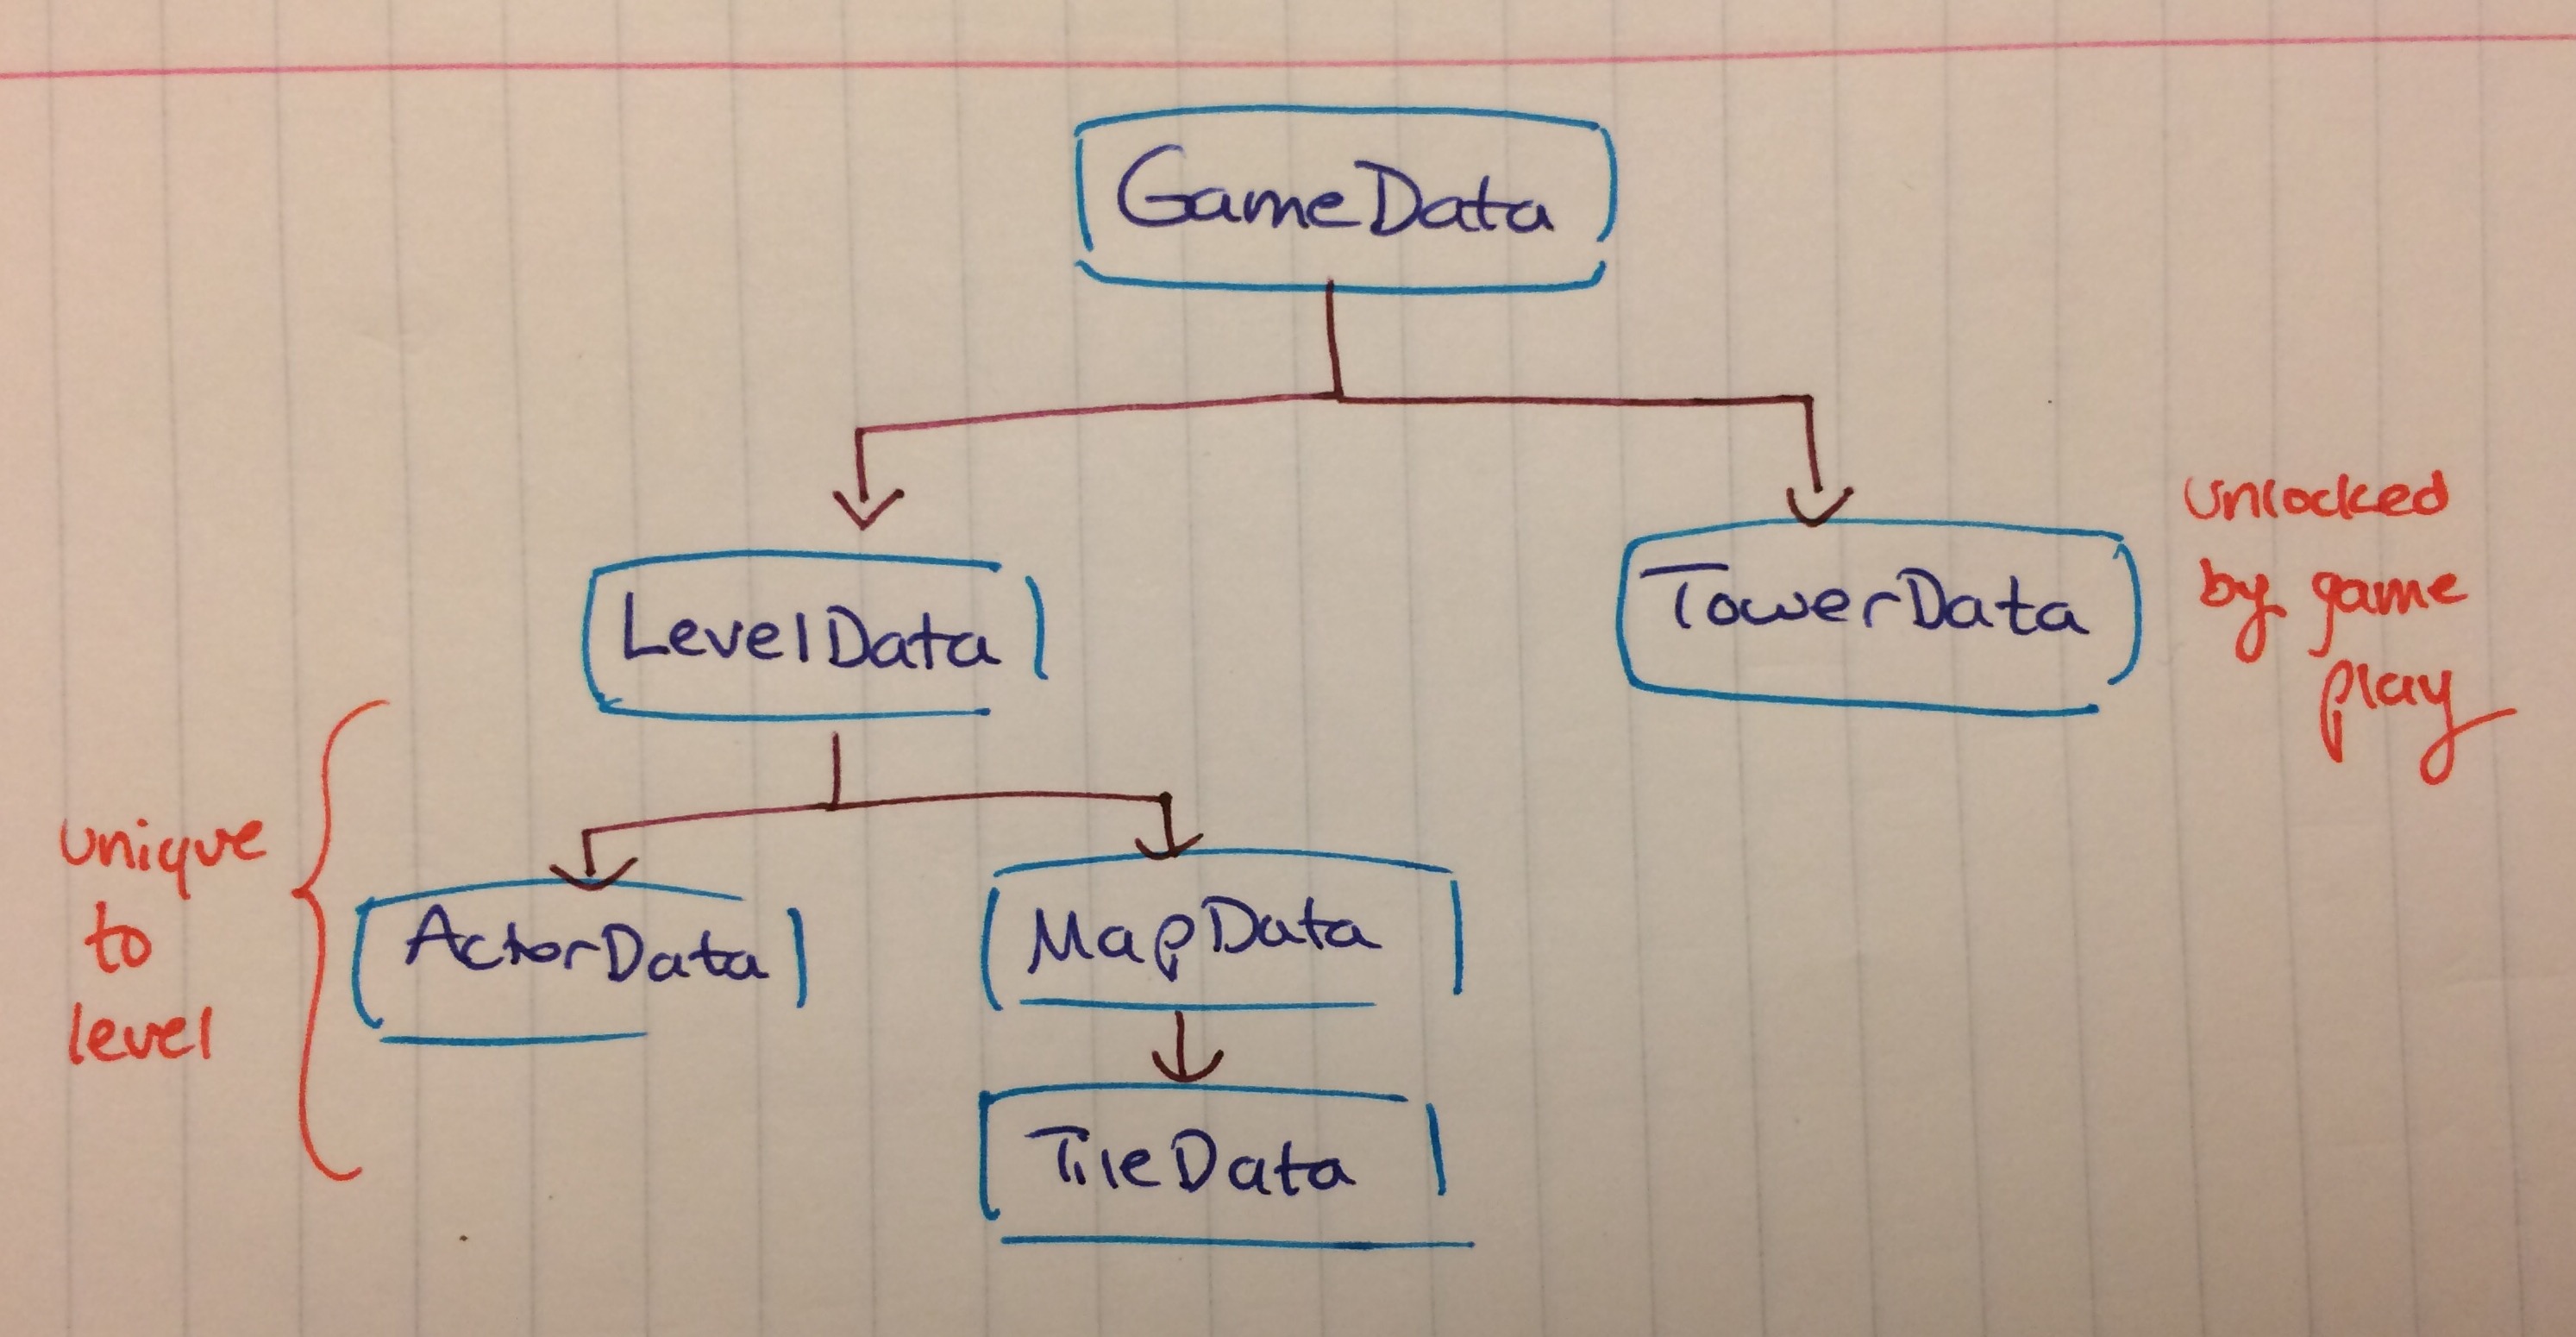 GameData
LevelData
TowerData
unlocked
by game
play
unique
to
level
ActorData
MapData
TileData